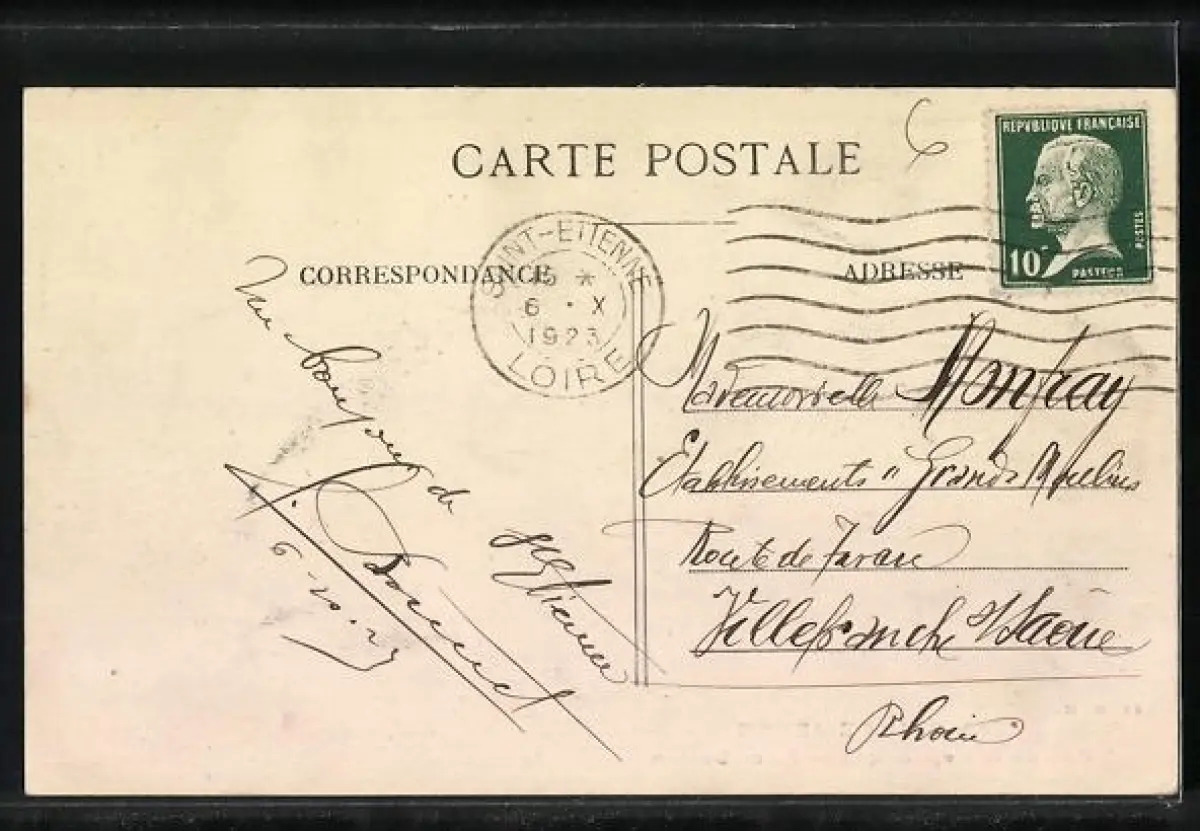 CARTE POSTALE
6
REPVBLIQUE FRANÇAISE
POSTES
10c
PASTEUR
SAINT-ETIENNE
15 *
6 · X
1923
LOIRE
CORRESPONDANCE
ADRESSE
Un bonjour de
St Etienne
6-10-23
Mademoiselle Monfray
Etablissements "Grands Moulins
Route de
Villefranche s/Saône
Rhône